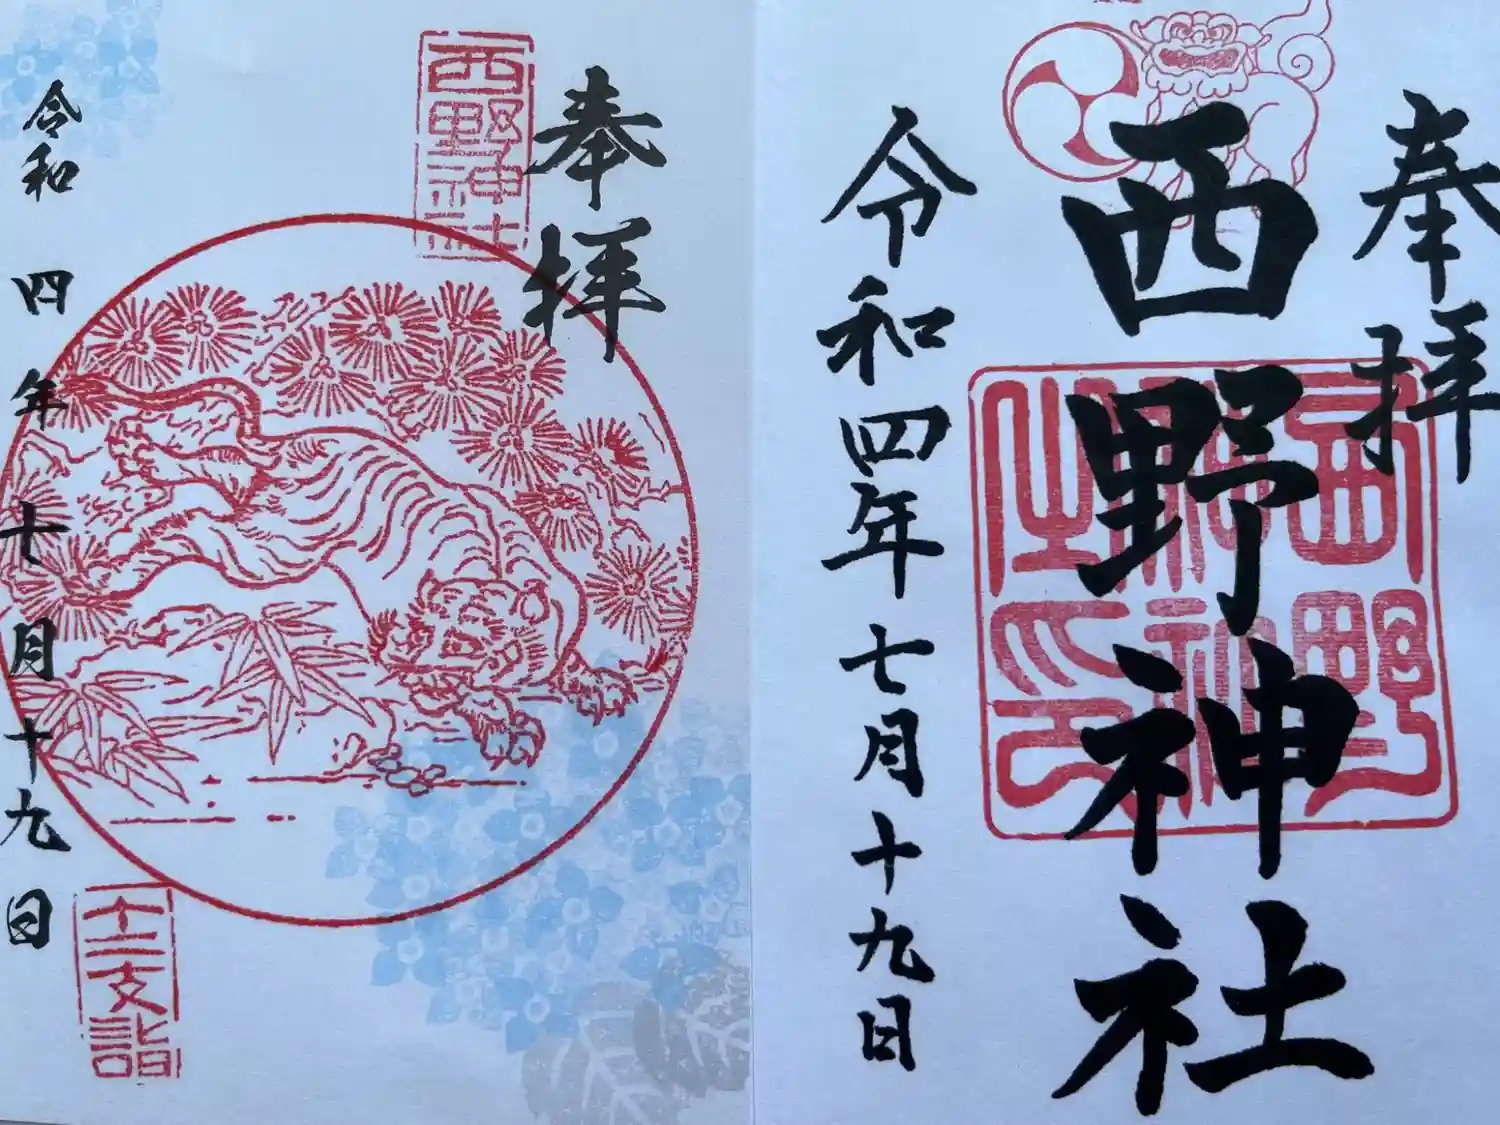 奉拝
西野神社
令和四年七月十九日
西野神社印
奉拝
西野神社
令和四年七月十九日
十二支詣